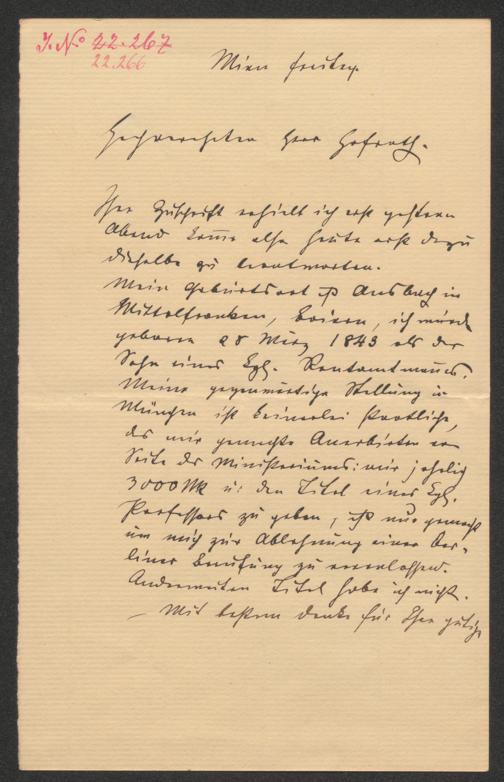 J. No 22.267
22.266
Wien Freitag.
Hochverehrter Herr Hofrath.
Ihre Zuschrift erhielt ich erst gestern
Abend komme also heute erst dazu
dieselbe zu beantworten.
Mein Geburtsort ist Ansbach in
Mittelfranken, Baiern, ich wurde
geboren 28 März 1843 als der
Sohn eines Kgl. Rentamtmanns.
Meine gegenwärtige Stellung in
München ist keinerlei staatliche,
das mir gemachte Anerbieten von
Seite des Ministeriums: mir jährlich
3000 Mk u: den Titel eines Kgl.
Professors zu geben, ist nur gemacht
um mich zur Ablehnung einer Ber-
liner Berufung zu veranlassen.
Titel habe ich nicht.
– Mit bestem Danke für Ihre gütige